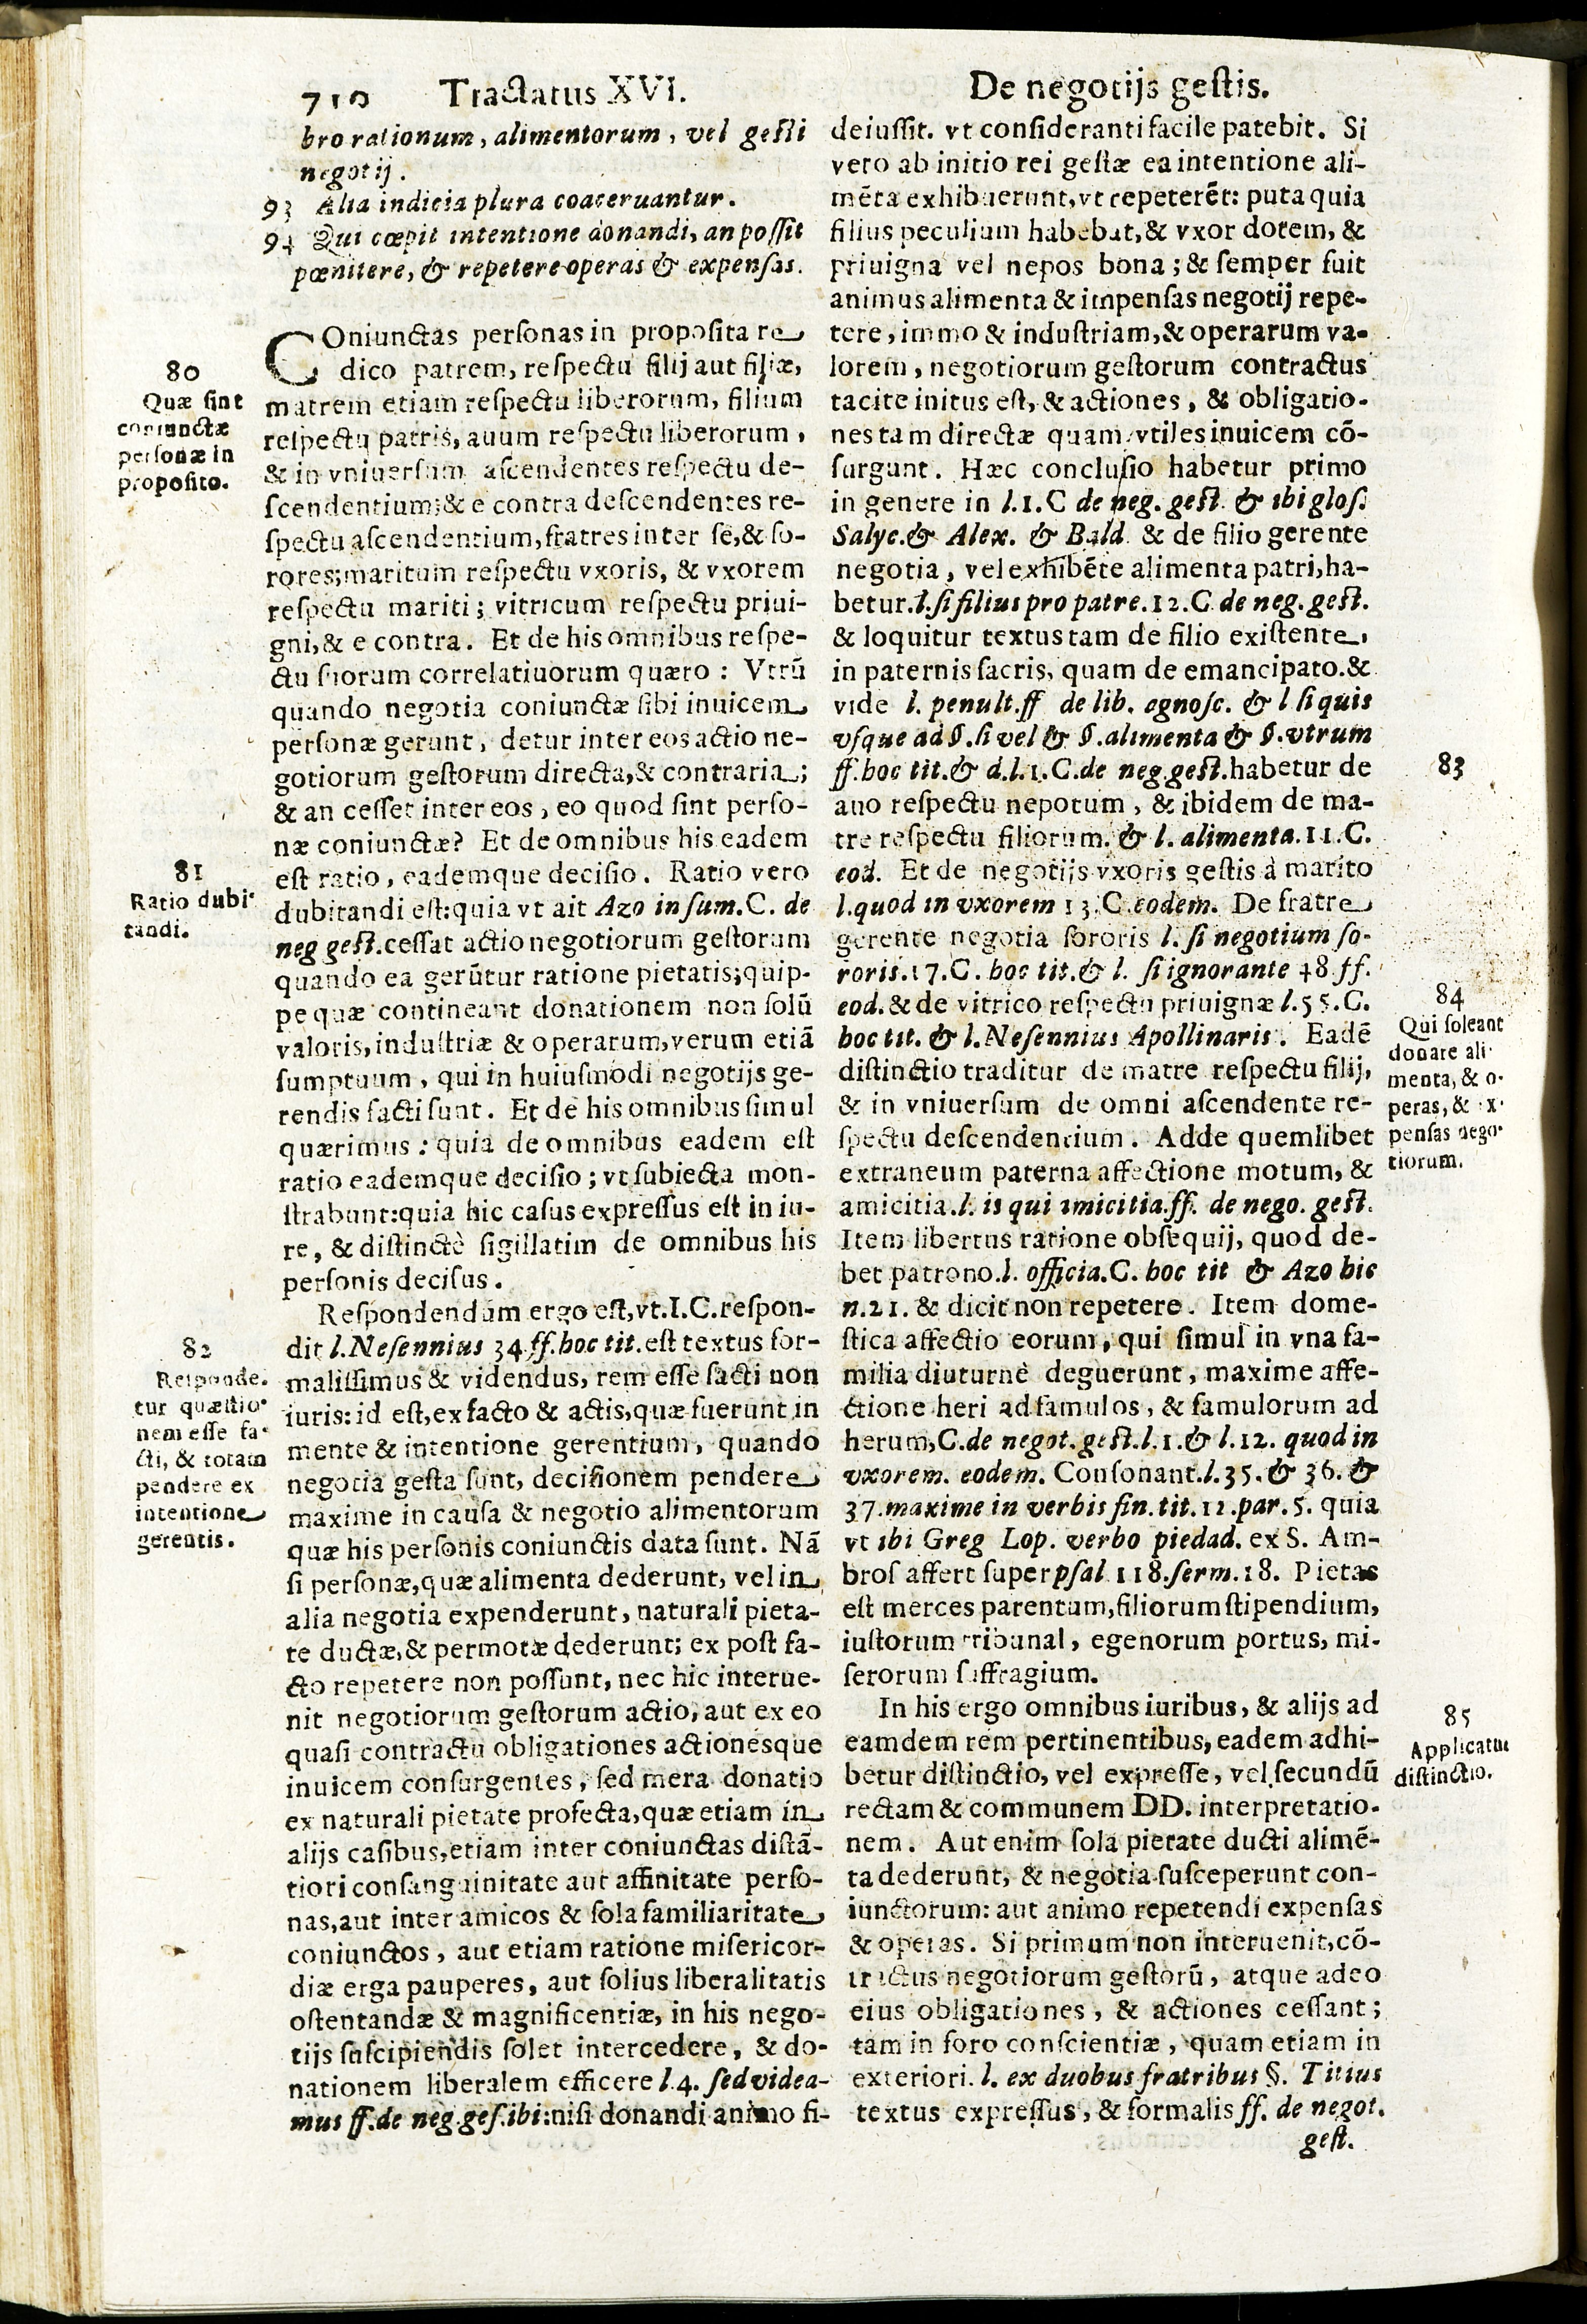 710 Tractatus XVI. De negotijs gestis.
bro rationum, alimentorum, vel gesti
negotij.
93 Alia indicia plura coaceruantur.
94 Qui cœpit intentione donandi, an possit
pœnitere, & repetere operas & expensas.
COniunctas personas in proposita re
dico patrem, respectu filij aut filiæ,
matrem etiam respectu liberorum, filium
respectu patris, auum respectu liberorum,
& in vniuersum ascendentes respectu de-
scendentium; & e contra descendentes re-
spectu ascendentium, fratres inter se, & so-
rores; maritum respectu vxoris, & vxorem
respectu mariti; vitricum respectu priui-
gni, & e contra. Et de his omnibus respe-
ctu suorum correlatiuorum quæro: Vtrũ
quando negotia coniunctæ sibi inuicem
personæ gerunt, detur inter eos actio ne-
gotiorum gestorum directa, & contraria;
& an cesset inter eos, eo quod sint perso-
næ coniunctæ? Et de omnibus his eadem
est ratio, eademque decisio. Ratio vero
dubitandi est: quia vt ait Azo in sum. C. de
neg gest. cessat actio negotiorum gestorum
quando ea gerũtur ratione pietatis; quip-
pe quæ contineant donationem non solũ
valoris, industriæ & operarum, verum etiã
sumptuum, qui in huiusmodi negotijs ge-
rendis facti sunt. Et de his omnibus simul
quærimus: quia de omnibus eadem est
ratio eademque decisio; vt subiecta mon-
strabunt: quia hic casus expressus est in iu-
re, & distinctè sigillatim de omnibus his
personis decisus.
Respondendum ergo est, vt. I. C. respon-
dit l. Nesennius 34. ff. hoc tit. est textus for-
malissimus & videndus, rem esse facti non
iuris: id est, ex facto & actis, quæ fuerunt in
mente & intentione gerentium, quando
negotia gesta sunt, decisionem pendere
maxime in causa & negotio alimentorum
quæ his personis coniunctis data sunt. Nã
si personæ, quæ alimenta dederunt, vel in
alia negotia expenderunt, naturali pieta-
te ductæ, & permotæ dederunt; ex post fa-
cto repetere non possunt, nec hic interue-
nit negotiorum gestorum actio, aut ex eo
quasi contractu obligationes actionesque
inuicem consurgentes, sed mera donatio
ex naturali pietate profecta, quæ etiam in
alijs casibus, etiam inter coniunctas distã-
tiori consanguinitate aut affinitate perso-
nas, aut inter amicos & sola familiaritate
coniunctos, aut etiam ratione misericor-
diæ erga pauperes, aut solius liberalitatis
ostentandæ & magnificentiæ, in his nego-
tijs suscipiendis solet intercedere, & do-
nationem liberalem efficere l. 4. sed videa-
mus ff. de neg. ges. ibi: nisi donandi animo fi-
80
Quæ sint
coniunctæ
personæ in
proposito.
81
Ratio dubi-
tandi.
82
Responde-
tur quæstio-
nem esse fa-
cti, & totam
pendere ex
intentione
gerentis.
deiussit. vt consideranti facile patebit. Si
vero ab initio rei gestæ ea intentione ali-
mẽta exhibuerunt, vt repeterẽt: puta quia
filius peculium habebat, & vxor dotem, &
priuigna vel nepos bona; & semper fuit
animus alimenta & impensas negotij repe-
tere, immo & industriam, & operarum va-
lorem, negotiorum gestorum contractus
tacite initus est, & actiones, & obligatio-
nes tam directæ quam vtiles inuicem cõ-
surgunt. Hæc conclusio habetur primo
in genere in l. 1. C de neg. gest. & ibi glos.
Salyc. & Alex. & Bald. & de filio gerente
negotia, vel exhibẽte alimenta patri, ha-
betur. l. si filius pro patre. 12. C de neg. gest.
& loquitur textus tam de filio existente,
in paternis sacris, quam de emancipato. &
vide l. penult. ff de lib. agnosc. & l si quis
vsque ad §. si vel & §. alimenta & §. vtrum
ff. hoc tit. & d. l. 1. C. de neg. gest. habetur de
auo respectu nepotum, & ibidem de ma-
tre respectu filiorum. & l. alimenta. 11. C.
eod. Et de negotijs vxoris gestis à marito
l. quod in vxorem 13. C. eodem. De fratre
gerente negotia sororis l. si negotium so-
roris. 17. C. hoc tit. & l. si ignorante 48. ff.
eod. & de vitrico respectu priuignæ l. 55. C.
hoc tit. & l. Nesennius Apollinaris. Eadẽ
distinctio traditur de matre respectu filij,
& in vniuersum de omni ascendente re-
spectu descendentium. Adde quemlibet
extraneum paterna affectione motum, &
amicitia. l. is qui amicitia. ff. de nego. gest.
Item libertus ratione obsequij, quod de-
bet patrono. l. officia. C. hoc tit & Azo hic
n. 21. & dicit non repetere. Item dome-
stica affectio eorum, qui simul in vna fa-
milia diuturnè deguerunt, maxime affe-
ctione heri ad famulos, & famulorum ad
herum, C. de negot. gest. l. 1. & l. 12. quod in
vxorem. eodem. Consonant. l. 35. & 36. &
37. maxime in verbis fin. tit. 12. par. 5. quia
vt ibi Greg Lop. verbo piedad. ex S. Am-
bros affert super psal 118. serm. 18. Pietas
est merces parentum, filiorum stipendium,
iustorum tribunal, egenorum portus, mi-
serorum suffragium.
In his ergo omnibus iuribus, & alijs ad
eamdem rem pertinentibus, eadem adhi-
betur distinctio, vel expresse, vel secundũ
rectam & communem DD. interpretatio-
nem. Aut enim sola pietate ducti alimẽ-
ta dederunt, & negotia susceperunt con-
iunctorum: aut animo repetendi expensas
& operas. Si primum non interuenit, cõ-
tractus negotiorum gestorũ, atque adeo
eius obligationes, & actiones cessant;
tam in foro conscientiæ, quam etiam in
exteriori. l. ex duobus fratribus §. Titius
textus expressus, & formalis ff. de negot.
gest.
83
84
Qui soleant
donare ali-
menta, & o-
peras, & ex-
pensas nego-
tiorum.
85
Applicatur
distinctio.